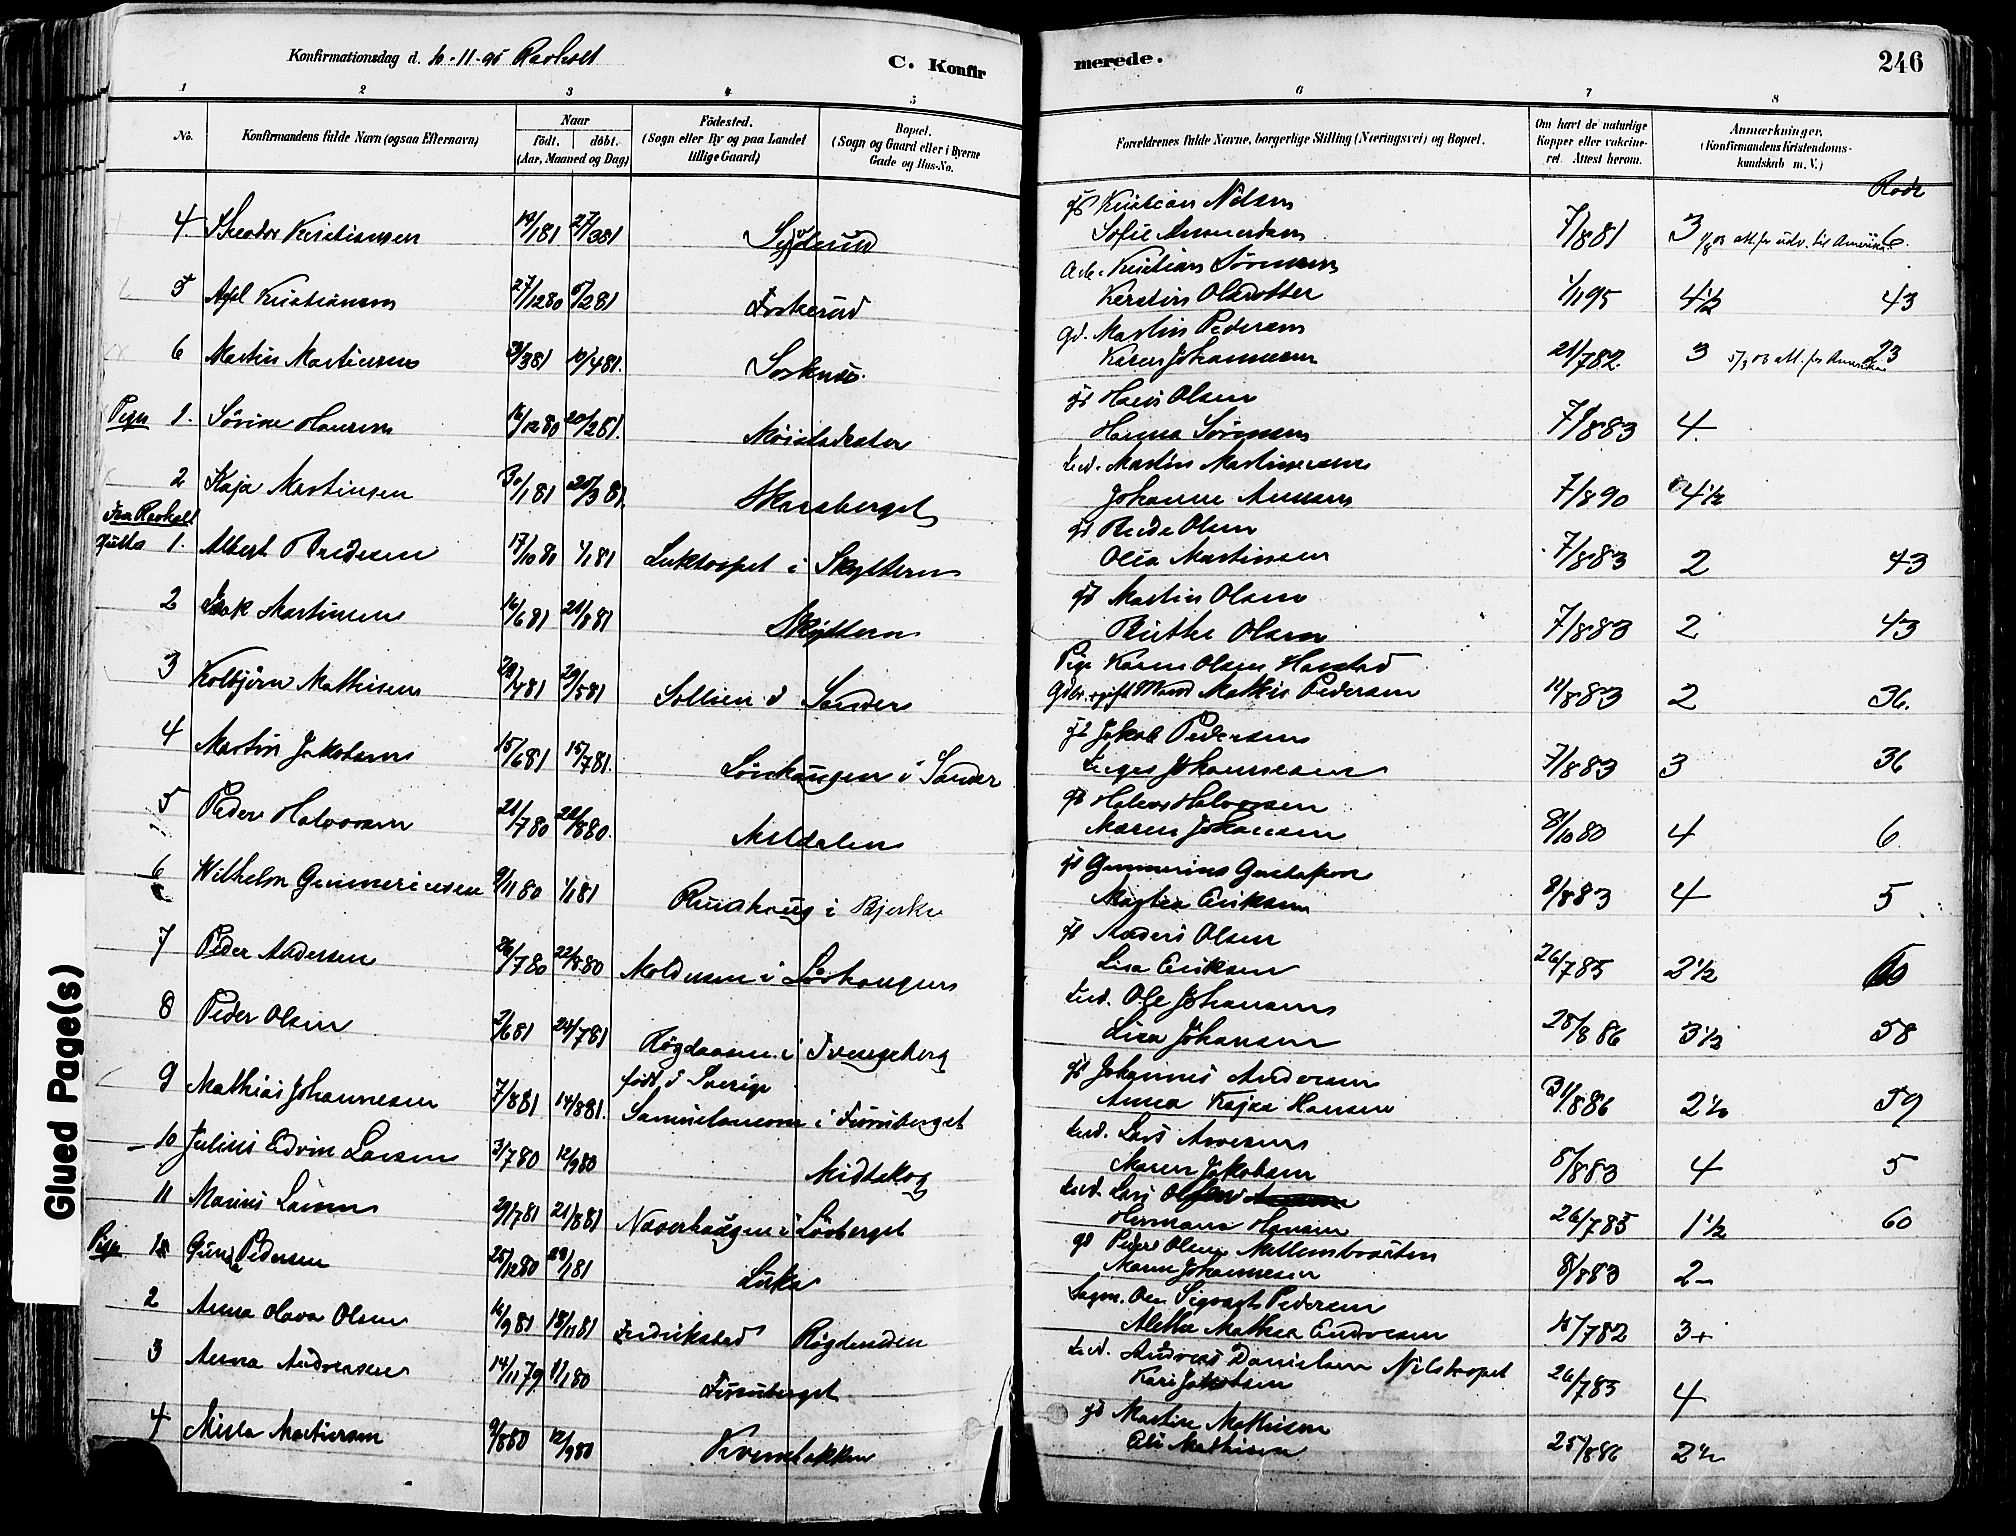 Konfirmationsdag d. 10-11-95 Ravholt
C. Konfirmerede.
246
1 2 3 4 5 6 7 8
No.
Konfirmandens fulde Navn (ogsaa Efternavn)
Naar
født. døbt.
(Aar, Maaned og Dag)
Fødested.
(Sogn eller By og paa Landet tillige Gaard)
Bopæl.
(Sogn og Gaard eller i Byerne Gade og Hus-No.
Forældrenes fulde Navne, borgerlige Stilling (Næringsvei) og Bopæl.
Om havt de naturlige Kopper eller vakcineret. Attest herom.
Anmærkninger.
(Konfirmandens Kristendomskundskab m. V.)
Rode
4 Theodor Kristiansen 19/1 81 27/3 81 gs Kristian Nilsen
Sofie 7/8 81 3 att. for udv. til Amerika 6.
5 Axel Kristiansen 27/12 80 6/2 81 Foskerud Kristian Sørensen
Kerstin Olsdotter 1/11 95 4½ 43
6 Martin Martinsen 3/3 81 10/4 81. Sorknes. gd. Martin Pedersen
Karen Johannesen 21/7 82. 3 5/9 03 att. for Amerika 23
Piger 1. Sørine Hansen 16/12 80 20/2 81. Møistadsæter gs Hans Olsen
Hanna Sørensen 7/8 83 4.
2 Kaja Martinsen 30/1 81 20/3 81. Skaraberget Ind. Martin Martinsen
Johanne 7/8 90 4½
Fra Ravholt
Gutta 1. Albert 17/10 80 1/1 81 Luktorpet i Skyttern gs Olsen
Olia Martinsen 7/8 83 2 43
2 Isak Martinsen 16/6 81 21/8 81 Skyttern gs Martin Olsen
Olsen 7/8 83 2 43
3 Kolbjørn Mathisen 29/5 81 Sollien i Sander Pige Karen Olsen
ugift Mand Mathis Pedersen 12/8 83 2 36.
4 Martin Jakobsen 15/6 81 15/7 81. Lövhaugen i Sander gs Jakob Pedersen
Inger Johannesen 7/8 83 3 36
5 Peder Halvorsen 21/7 80 22/8 80. Meldalen gs Halvor Halvorsen
Maren Johansen 8/10 80 4 6
6 Wilhelm Gunneriusen 9/11 80 1/1 81 Rudshaug i Bjerke gs Gunnerius Gustafson
Marthea Eriksen 8/8 83 4 5
7 Peder Andersen 26/7 80 22/8 80 Moldusen i Lövhaugen gs Anders Olsen
Lisa Eriksen 26/7 85 2½ 60
8 Peder Olsen 2/6 81 24/7 81 Røgdaasen i Tvengsberg Ind. Ole Johansen
Lisa Johansen 25/8 86 3½ 58
9 Mathias Johannesen 7/8 81 14/8 81. født i Sverige
Samuelsmoen i Furuberget gs Johannes Andersen
Anna Kajsa Hansen 31/8 86 2½ 59
10 Julius Edvin Larsen 3/7 80 12/9 80 Midtskog Ind. Lars
Maren Jakobsen 8/8 83 4 5
11 Marius Larsen 29/7 81 21/8 81 Næverhaugen i Lövberget Ind. Lars Olsen
Hermana Hansen 26/7 85 1½ 60
Piger 1 Guna Pedersen 25/12 80 29/1 81 Liska gs Peder Olsen
Maren Johannesen 8/8 83 2-
2 Anna Olava Olsen 16/9 81 18/11 81 Fredrikstad Røgdenden Lagm. Ole Sigvart Pedersen
Alethe Mathea Andresen 15/7 82 3+
3 Anna Andreassen 14/11 79 1/1 80 Furuberget Ind. Andreas Danielsen Nilstorpet
Kari Jakobsen 26/7 85 4
4 Misla Martinsen 9/8 80 12/9 80 Kvernbakken gs Martin Mathisen
Mathisen 25/8 86 2½
Glued Page(s)